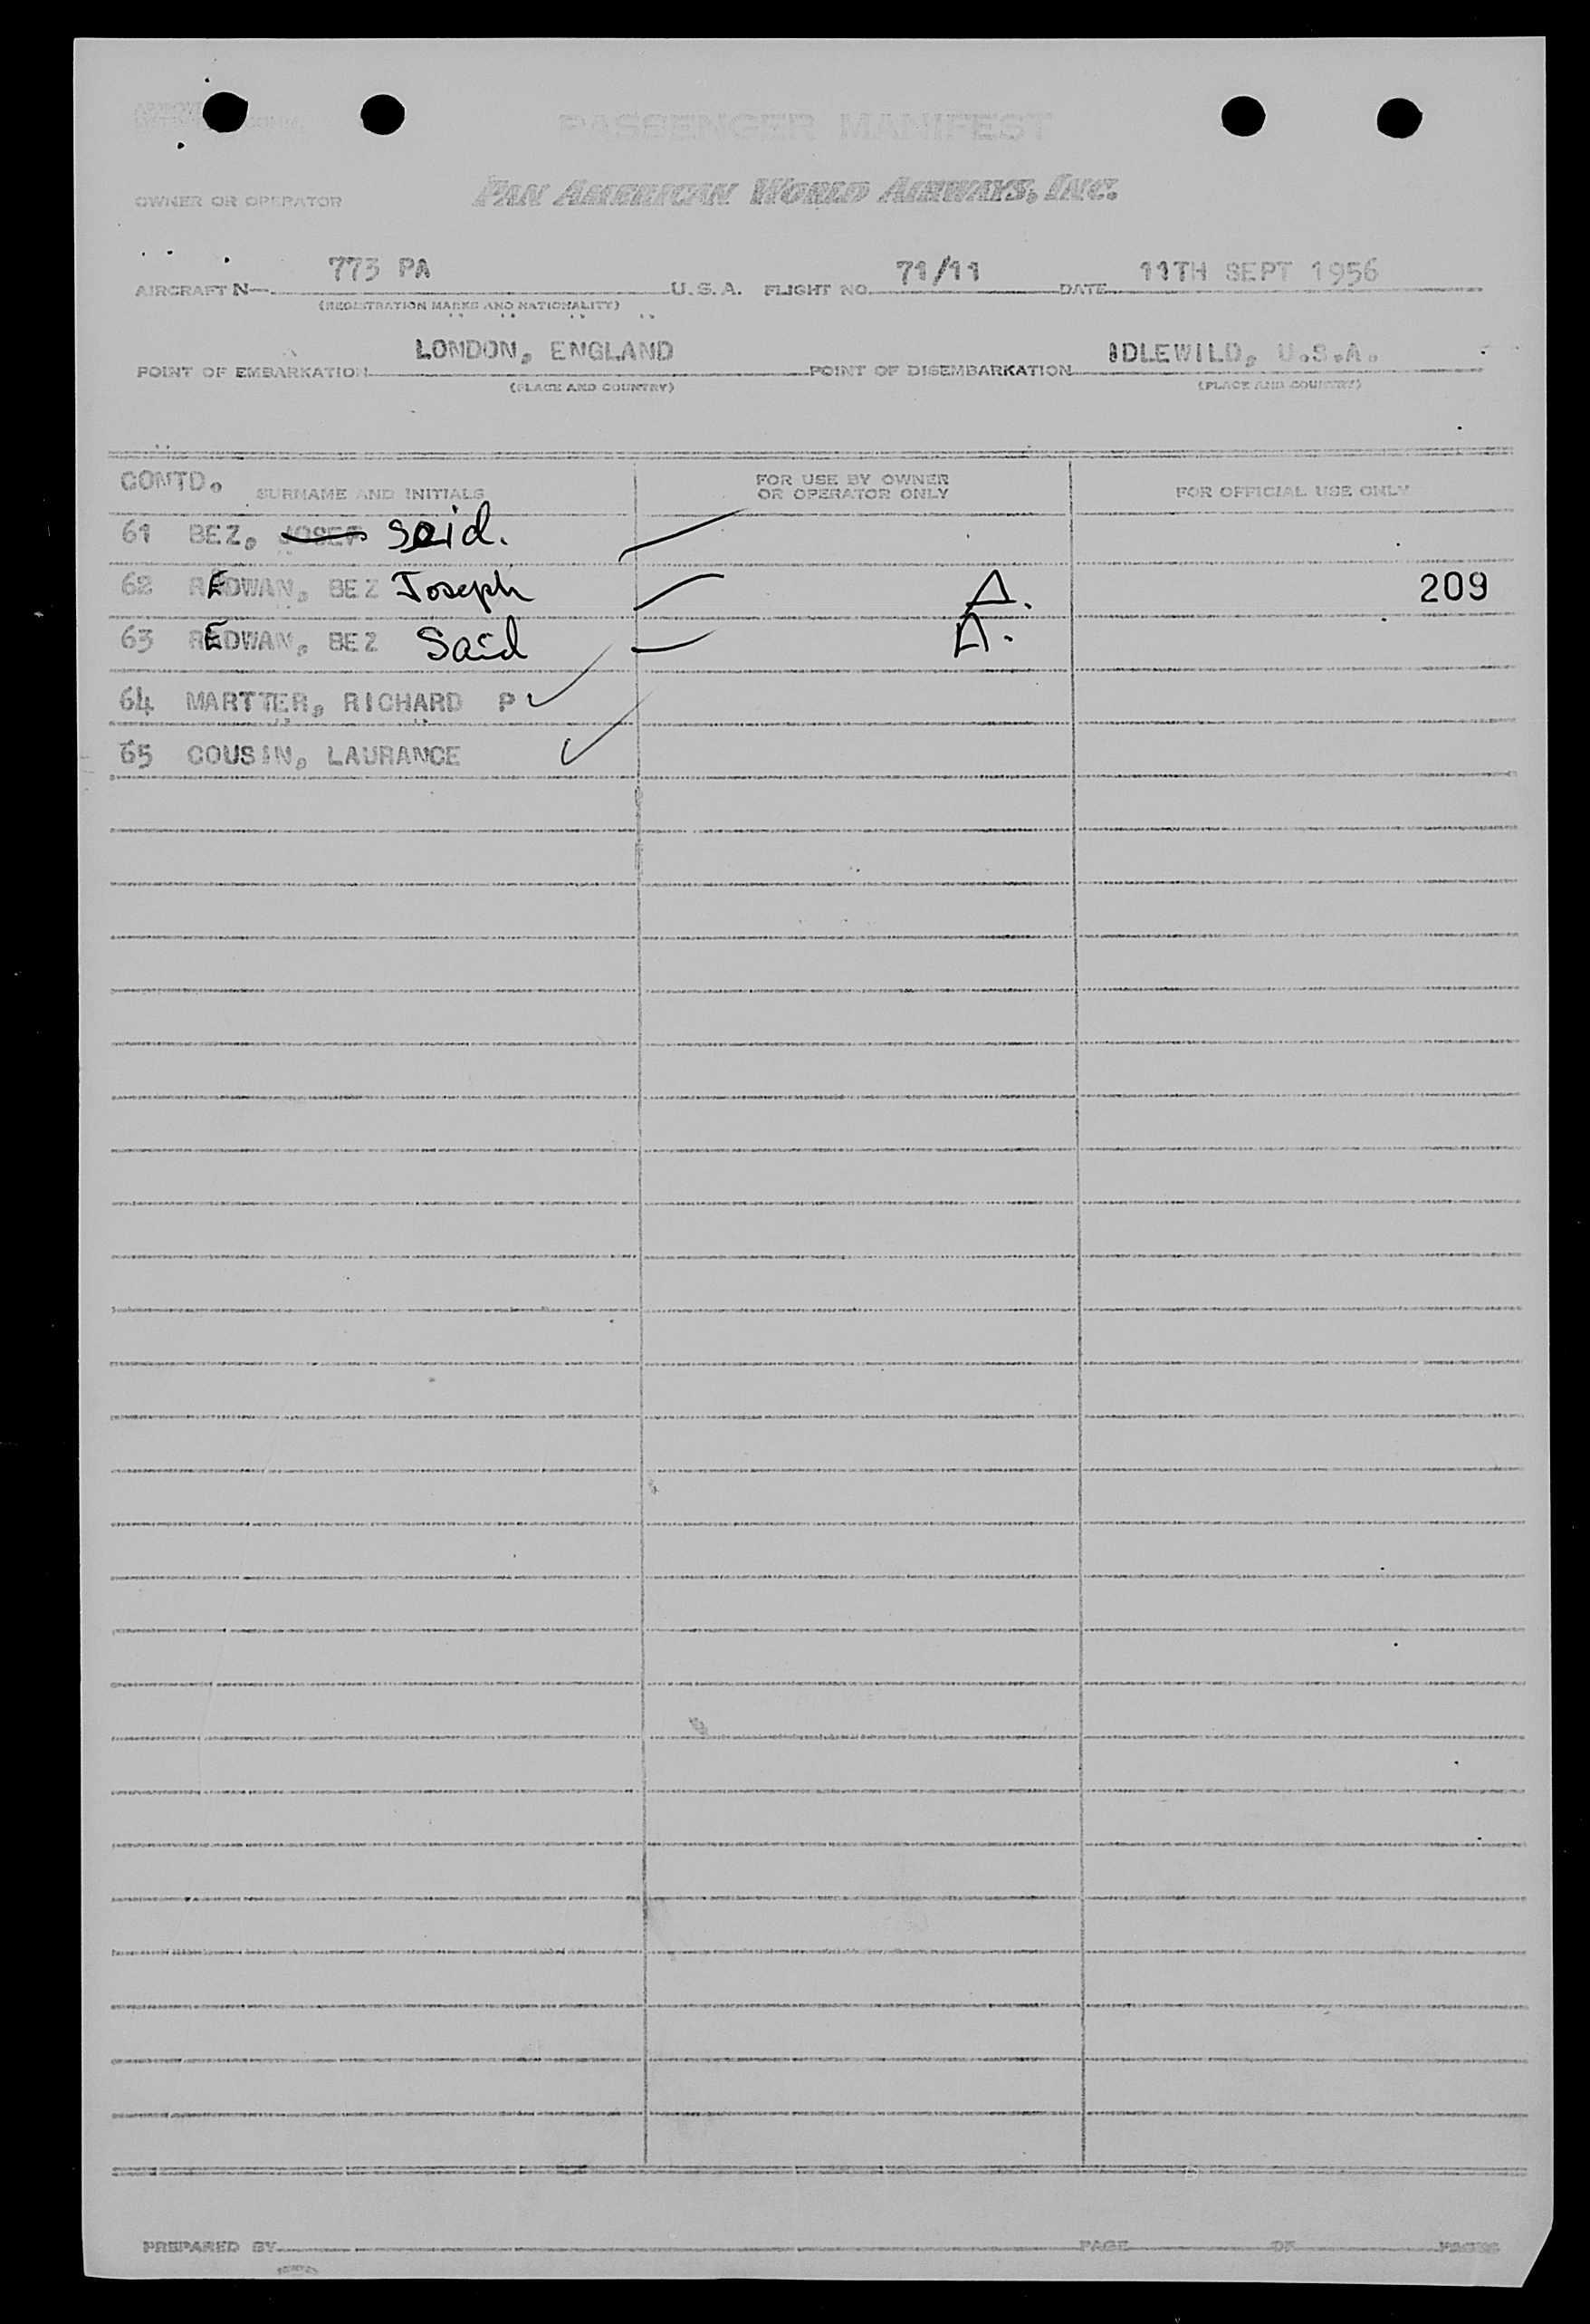 PASSENGER MANIFEST
OWNER OR OPERATOR PAN AMERICAN WORLD AIRWAYS, INC.
AIRCRAFT N- 773 PA U.S.A. FLIGHT NO. 71/11 DATE 11TH SEPT 1956
(REGISTRATION MARKS AND NATIONALITY)
POINT OF EMBARKATION LONDON, ENGLAND POINT OF DISEMBARKATION IDLEWILD, U.S.A.
(PLACE AND COUNTRY) (PLACE AND COUNTRY)
CONTD. SURNAME AND INITIALS FOR USE BY OWNER OR OPERATOR ONLY FOR OFFICIAL USE ONLY
61 BEZ, JOSEF Said.
62 REDWAN, BEZ Joseph A. 209
63 REDWAN, BEZ Said A.
64 MARTTER, RICHARD P
65 COUSIN, LAURANCE
PREPARED BY PAGE OF PAGES